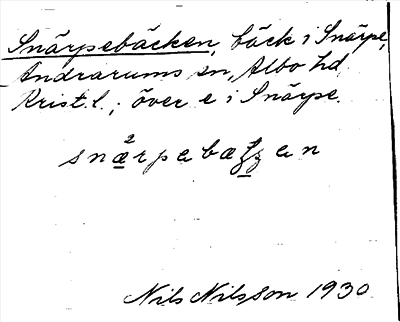 Snärpebäcken, bäck i Snärpe,
Andrarums sn, Albo hd
Krist. l.; över e i Snärpe.
Nils Nilsson 1930